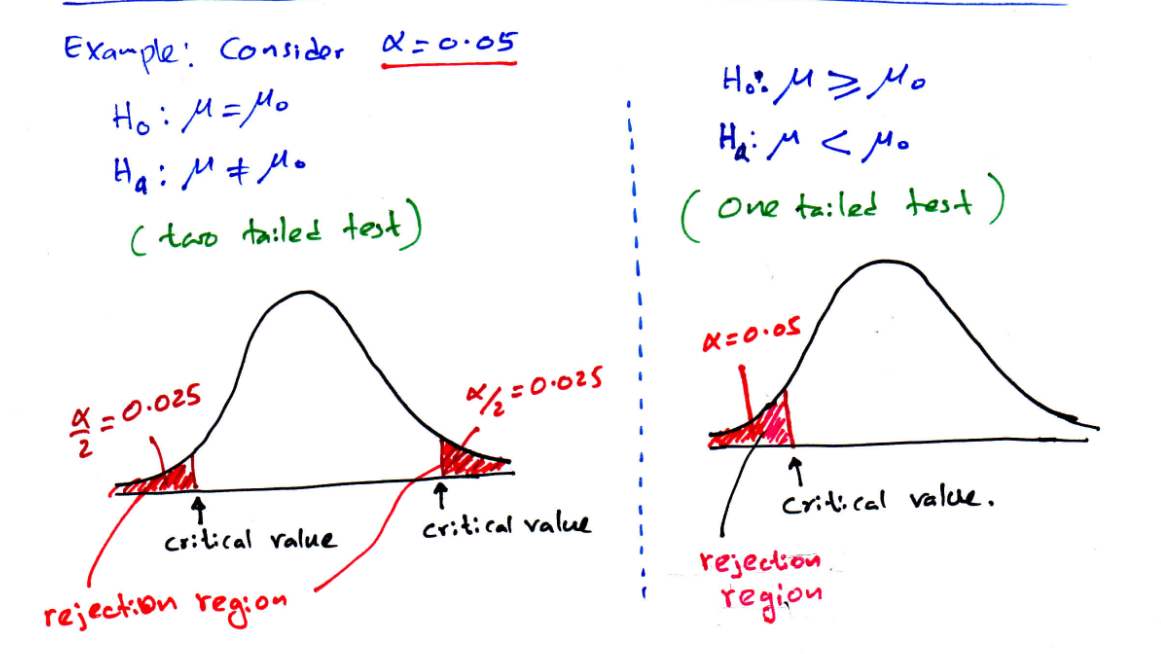 Example: Consider α = 0.05
H₀ : μ = μ₀
Hₐ : μ ≠ μ₀
(two tailed test)
α/2 = 0.025
α/2 = 0.025
critical value
critical value
rejection region
H₀: μ ⩾ μ₀
Hₐ: μ < μ₀
(One tailed test)
α = 0.05
critical value.
rejection
region